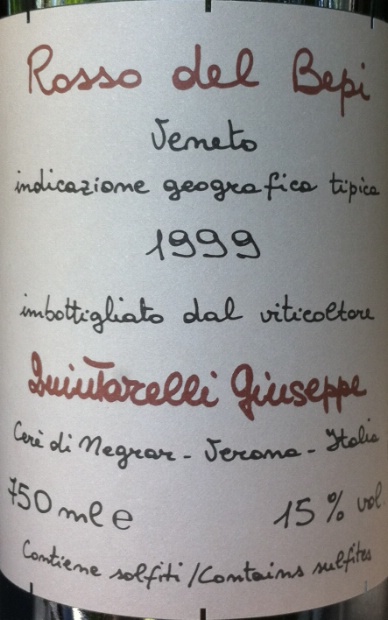 Rosso del Bepi
Veneto
indicazione geografica tipica
1999
imbottigliato dal viticoltore
Quintarelli Giuseppe
Cerè di Negrar - Verona - Italia
750 ml e 15% vol.
Contiene solfiti/Contains sulfites